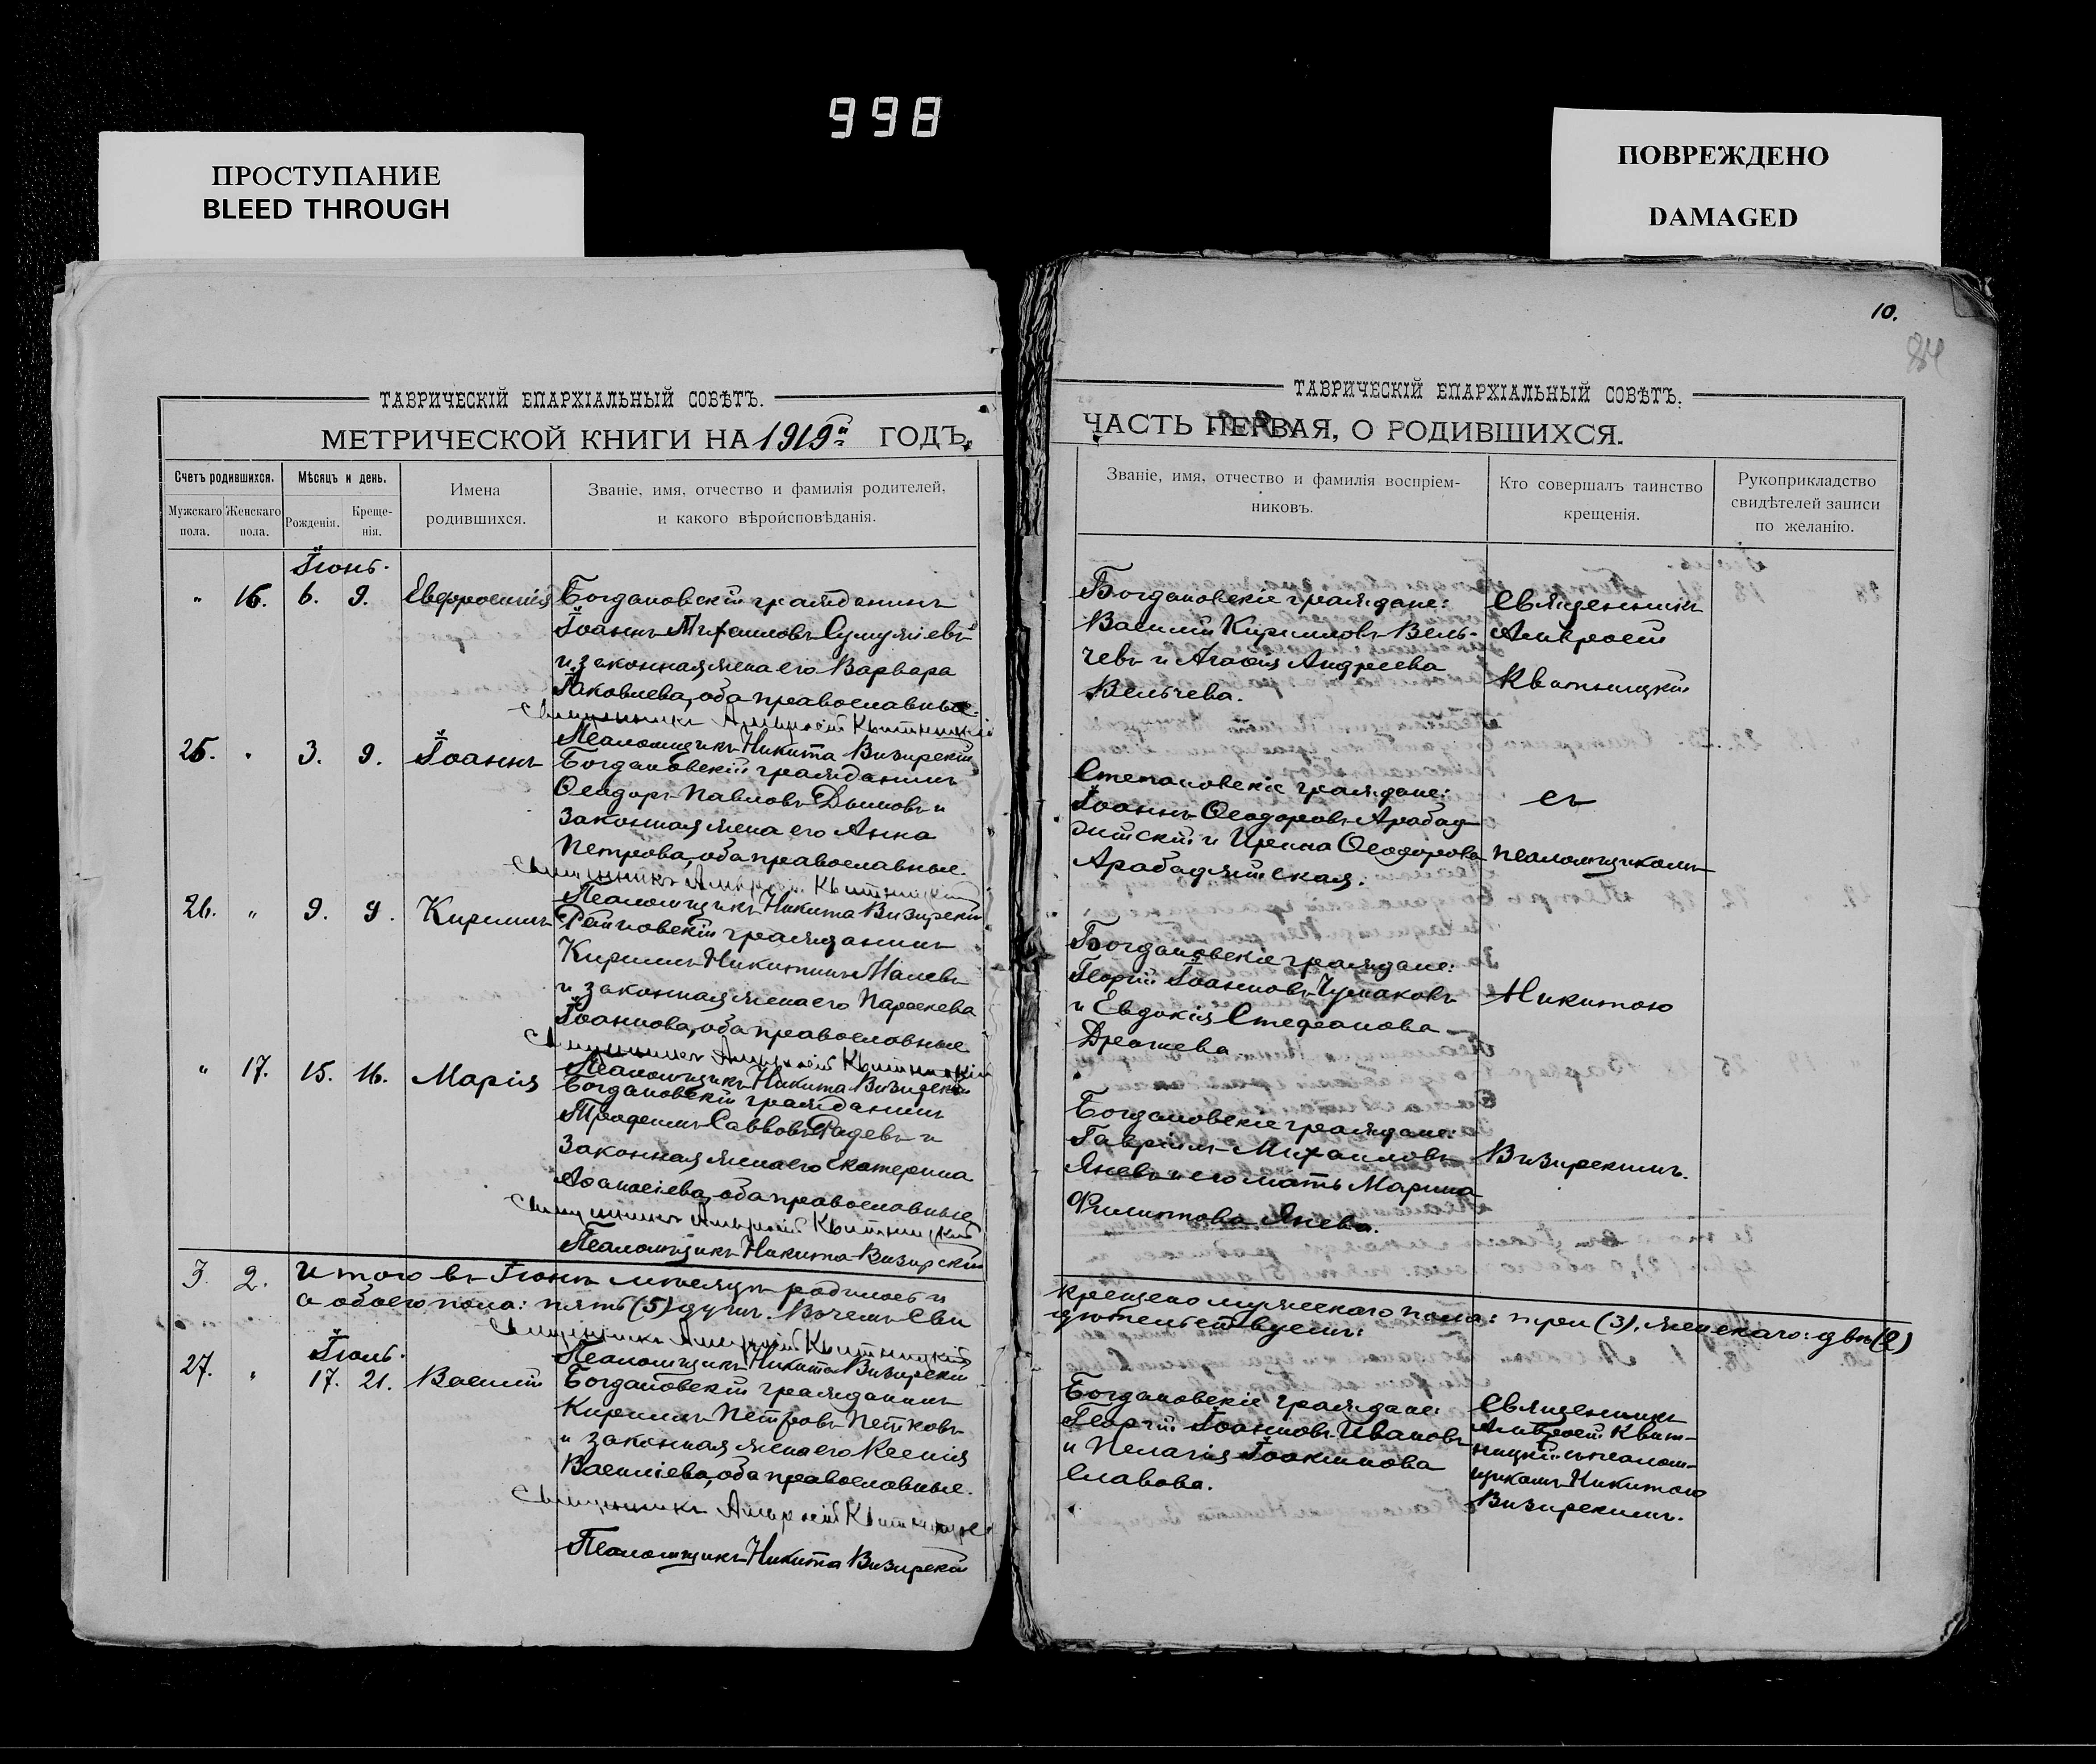 998
ПРОСТУПАНИЕ
BLEED THROUGH
ПОВРЕЖДЕНО
DAMAGED
10.
84
ТАВРИЧЕСКІЙ ЕПАРХІАЛЬНЫЙ СОВѢТЪ.
МЕТРИЧЕСКОЙ КНИГИ НА 1919й ГОДЪ,
Счетъ родившихся.
Мѣсяцъ и день.
Имена родившихся.
Званіе, имя, отчество и фамилія родителей,
и какого вѣроисповѣданія.
Мужскаго пола.
Женскаго пола.
Рожденія.
Крещенія.
Іюнь.
" 16. 6. 9. Евфросинія Богдановскій гражданинъ
Іоаннъ Михаиловъ
и законная жена его Варвара
Іаковлева, оба православные.
Священникъ Амвросій Квитницкій
Псаломщикъ Никита Визирскій
25. " 3. 9. Іоаннъ Богдановскій гражданинъ
Ѳеодоръ Павловъ Дымовъ и
законная жена его Анна
Петрова, оба православные.
Священникъ Амвросій Квитницкій
Псаломщикъ Никита Визирскій
26. " 9. 9. Кириллъ Райновскій гражданинъ
Кириллъ Никитинъ
и законная жена его Параскева
Іоаннова, оба православные
Священникъ Амвросій Квитницкій
Псаломщикъ Никита Визирскій
" 17. 15. 16. Марія Богдановскій гражданинъ
Трофимъ Саввовъ Радевъ и
законная жена его Екатерина
Аѳанасіева, оба православные
Священникъ Амвросій Квитницкій
Псаломщикъ Никита Визирскій
3. 2. Итого въ Іюнѣ мѣсяцѣ родилось и
а обоего пола: пять (5) душъ. Въ чемъ сви
Священникъ Амвросій Квитницкій
Псаломщикъ Никита Визирскій
Іюль.
27. " 17. 21. Василій Богдановскій гражданинъ
Кириллъ Петровъ Петковъ
и законная жена его Ксенія
Василіева, оба православные.
Священникъ Амвросій Квитницкій
Псаломщикъ Никита Визирскій
ТАВРИЧЕСКІЙ ЕПАРХІАЛЬНЫЙ СОВѢТЪ.
ЧАСТЬ ПЕРВАЯ, О РОДИВШИХСЯ.
Званіе, имя, отчество и фамилія воспріем-
никовъ.
Кто совершалъ таинство
крещенія.
Рукоприкладство
свидѣтелей записи
по желанію.
Богдановскіе граждане:
Василій Кирилловъ Вель-
чевъ и Агаѳія Андреева
Вельчева.
Священникъ
Амвросій
Квитницкій
Степановскіе граждане:
Іоаннъ Ѳеодоровъ Арабад-
жійскій и Ирина Ѳеодорова
Арабаджійская.
съ
псаломщикомъ
Богдановскіе граждане:
Георгій Іоанновъ Чумаковъ
и Евдокія Стефанова
Никитою
Богдановскіе граждане:
Гавріилъ Михаиловъ
Яневъ и его мать Марина
Филиппова Янева.
Визирскимъ.
крещено мужескаго пола: три (3), женскаго: двѣ (2)
дѣтельствуемъ:
Богдановскіе граждане:
Георгій Іоанновъ Ивановъ
и Пелагія Іоакимова
Славова.
Священникъ
Амвросій Квит-
ницкій съ псалом-
щикомъ Никитою
Визирскимъ.